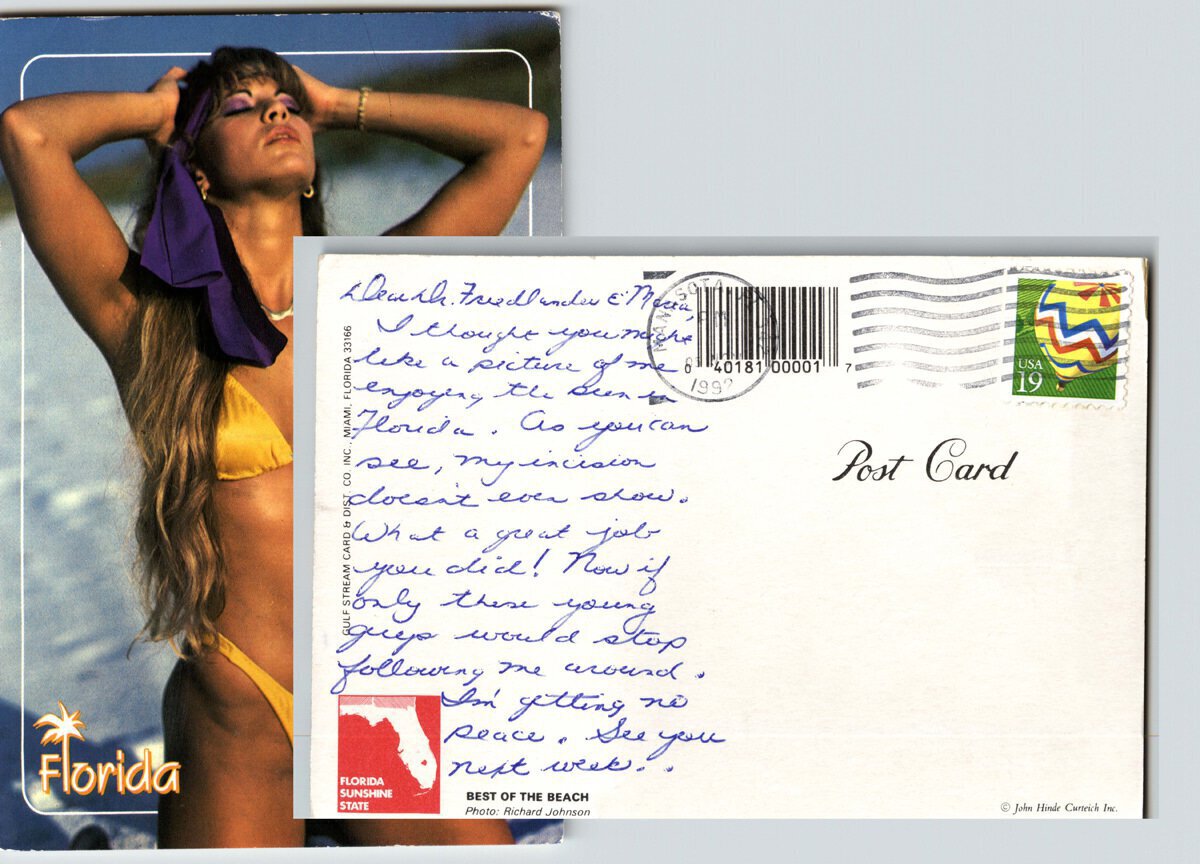 Florida
Dear Dr. Friedlander &
I thought you might
like a picture of me
enjoying the sun in
Florida. As you can
see, my incision
doesn't even show.
What a great job
you did! Now if
only these young
guys would stop
following me around.
I'm getting no
peace. See you
next week..
GULF STREAM CARD & DIST. CO. INC., MIAMI, FLORIDA 33166
FLORIDA
SUNSHINE
STATE
BEST OF THE BEACH
Photo: Richard Johnson
PM
1992
0 40181 00001 7
USA
19
Post Card
© John Hinde Curteich Inc.